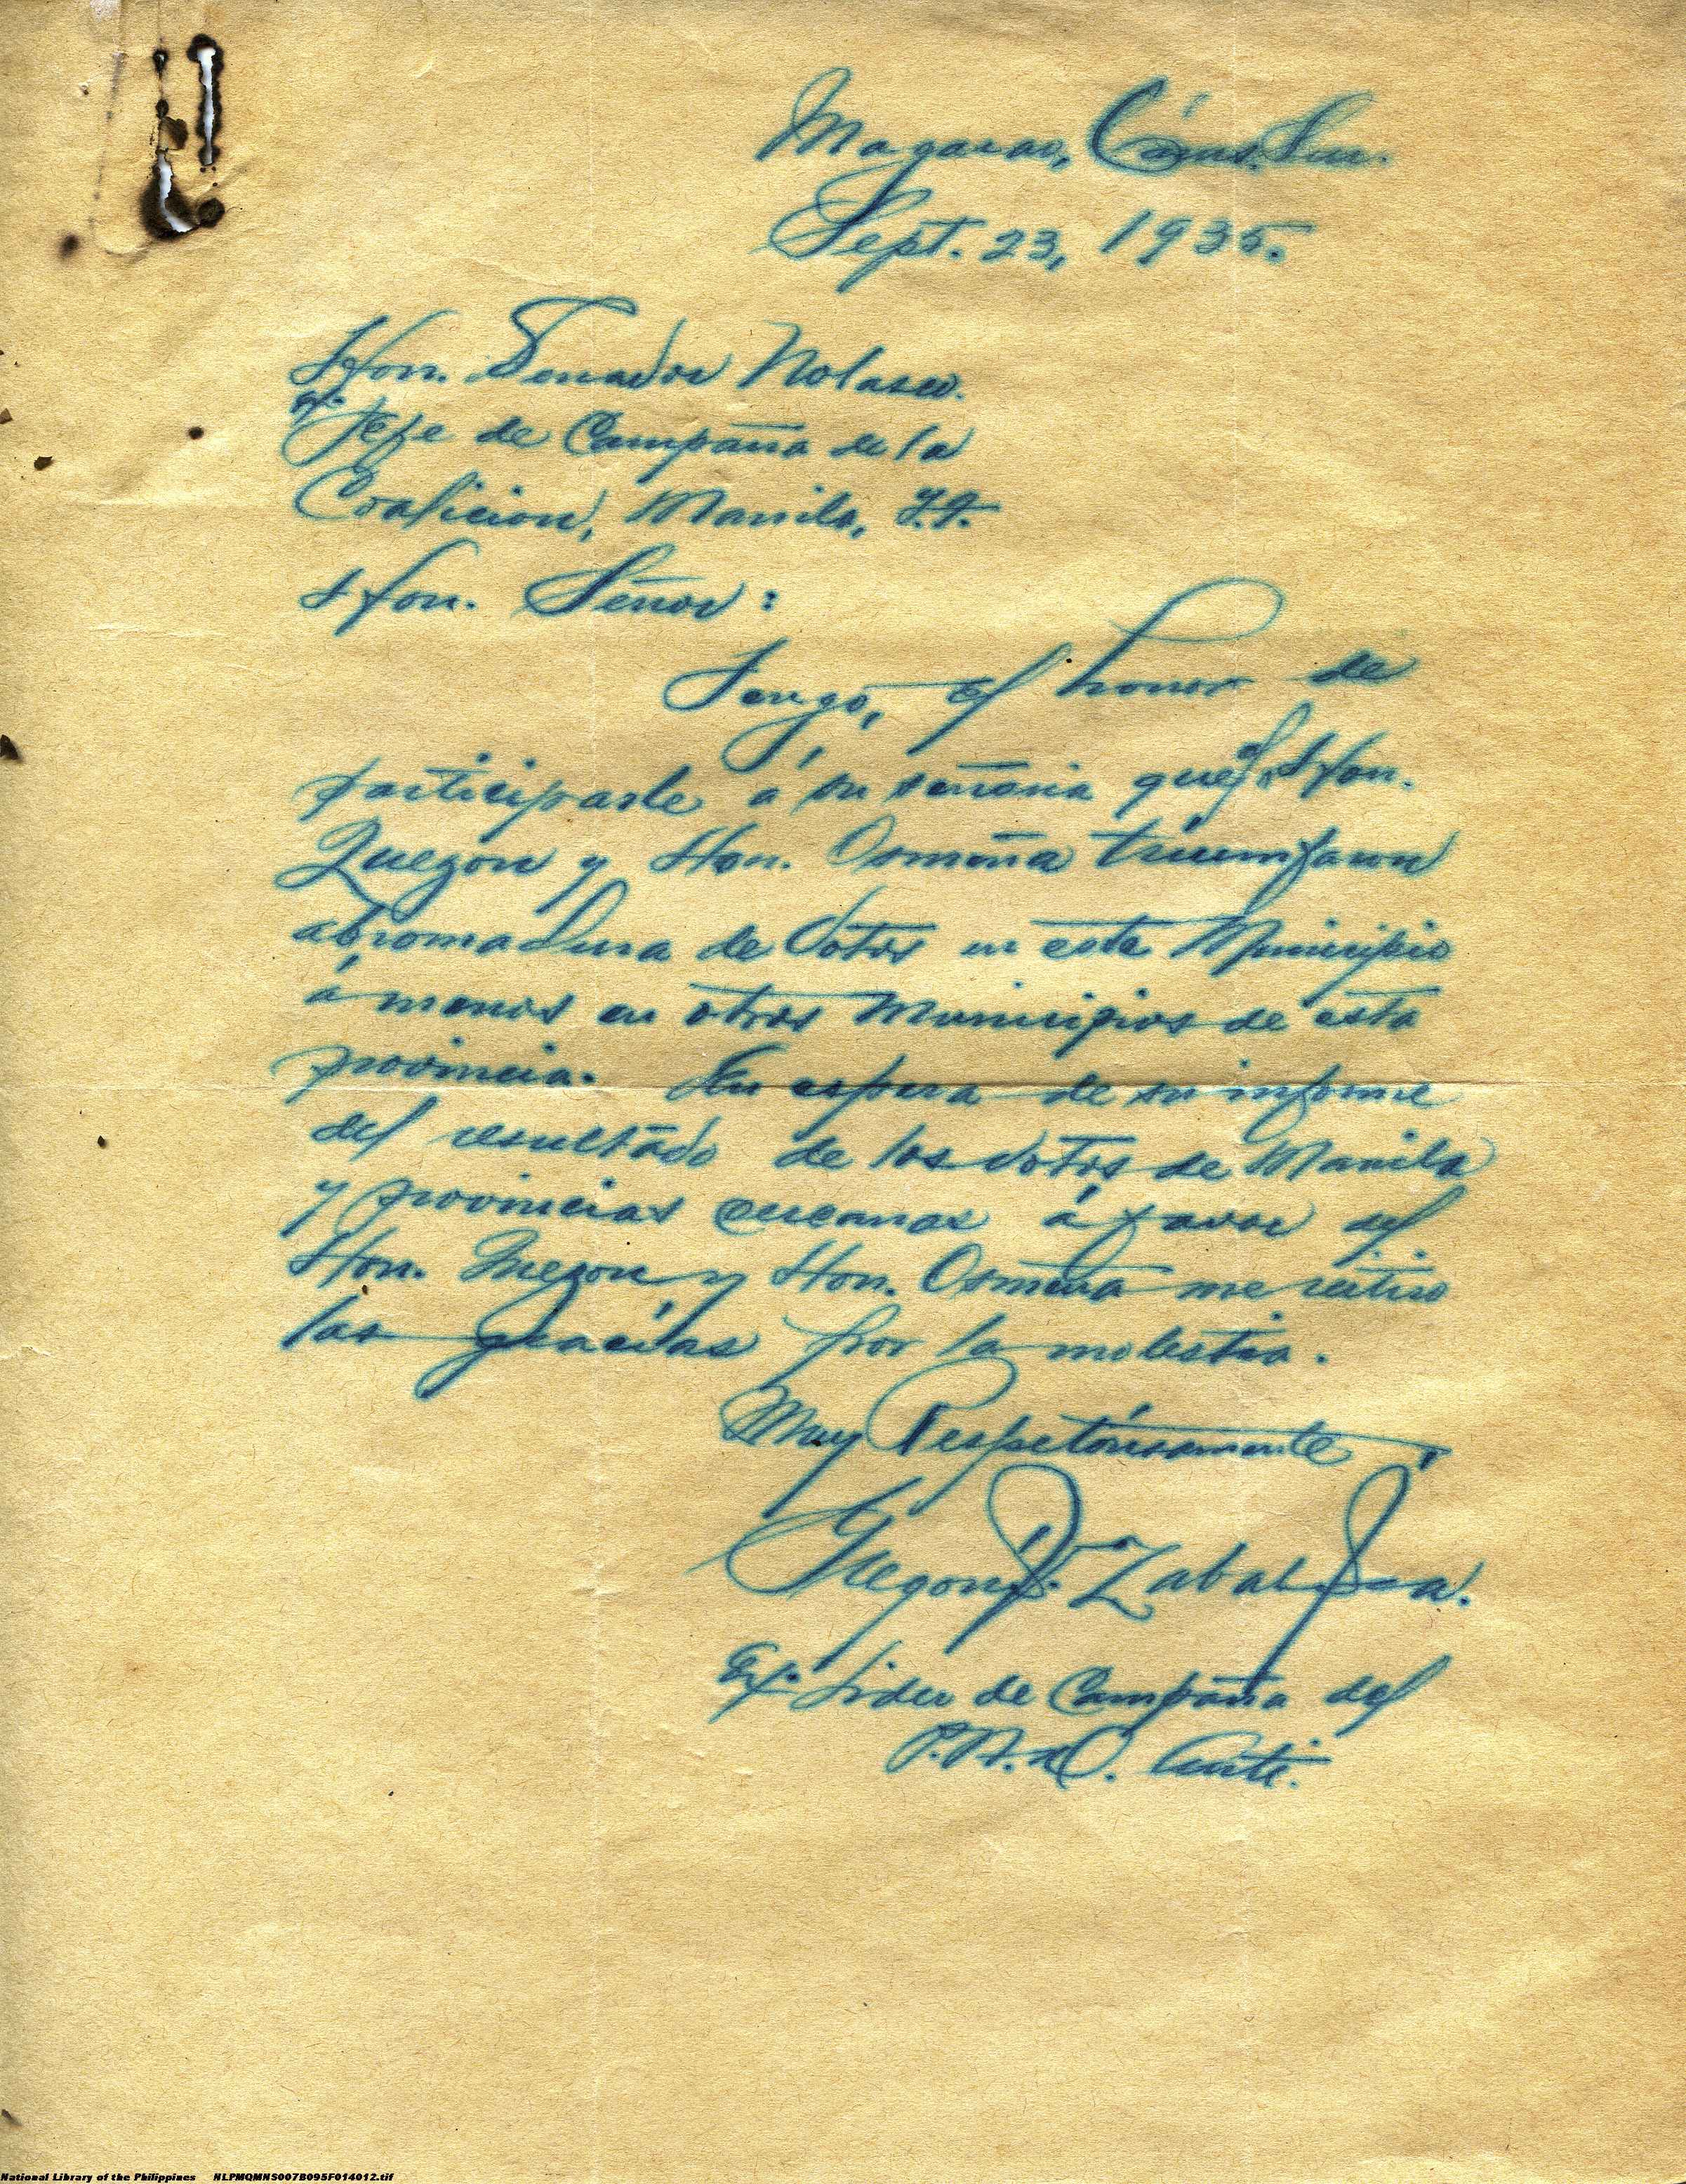 Magarao, Cams. Sur.
Sept. 23, 1935.
Hon. Senador Nolasco.
Ex. Jefe de Campaña de la
Coalicion, Manila, I.F.
Hon. Señor:
Tengo, el honor de
participarle á su señoria que el Hon.
Quezon y Hon. Osmeña triumfaron
abromadura de Votos en este Municipio
á menos en otros Municipios de esta
provincia. En espera de su informe
del resultado de los votos de Manila
y provincias cercanas á favor del
Hon. Quezon y Hon. Osmeña me reitiro
las gracias por la molestia.
Muy Respetuosamente,
P. Zabal
Ex. Lider de Campaña del
P.N.
National Library of the Philippines NLPMQMNS007B095F014012.tif